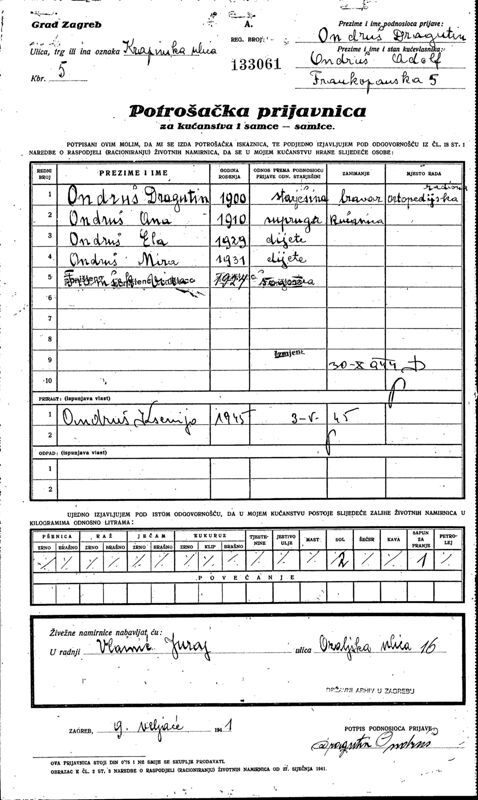 Grad Zagreb
Ulica, trg ili ina oznaka Krapinska ulica
Kbr. 5
A.
REG. BROJ:
133061
Prezime i ime podnosioca prijave:
Ondruš Dragutin
Prezime i ime i stan kućevlasnika:
Ondruš Adolf
Frankopanska 5
Potrošačka prijavnica
za kućanstva i samce — samice.
POTPISANI OVIM MOLIM, DA MI SE IZDA POTROŠAČKA ISKAZNICA, TE PODJEDNO IZJAVLJUJEM POD ODGOVORNOŠĆU IZ ČL. 18 ST. 1
NAREDBE O RASPODJELI (RACIONIRANJU) ŽIVOTNIH NAMIRNICA, DA SE U MOJEM KUĆANSTVU HRANE SLIJEDEĆE OSOBE:
REDNI BROJ PREZIME I IME GODINA ROĐENJA ODNOS PREMA PODNOSIOCU PRIJAVE ODN. STARJEŠINI ZANIMANJE MJESTO RADA
1 Ondruš Dragutin 1900 starješina bravar ortopedijska radiona
2 Ondruš Ana 1910 supruga kućanica
3 Ondruš Ela 1929 dijete
4 Ondruš Mira 1931 dijete
5
6
7
8
9 Izmjena 30-X 944
10
PRIRAST: (ispunjava vlast)
1 Ondruš Ksenija 1945 3-V- 45
2
OTPAD: (ispunjava vlast)
1
2
UJEDNO IZJAVLJUJEM POD ISTOM ODGOVORNOŠĆU, DA U MOJEM KUĆANSTVU POSTOJE SLIJEDEĆE ZALIHE ŽIVOTNIH NAMIRNICA U
KILOGRAMIMA ODNOSNO LITRAMA:
PŠENICA RAŽ JEČAM KUKURUZ TJESTENINE JESTIVO ULJE MAST SOL ŠEĆER KAVA SAPUN ZA PRANJE PETROLEJ
ZRNO BRAŠNO ZRNO BRAŠNO ZRNO BRAŠNO ZRNO KLIP BRAŠNO
% % % % % % % % % % % % 2 % % 1 %
POVEĆANJE
Živežne namirnice nabavljat ću:
U radnji Juraj ulica Ozaljska ulica 16
DRŽAVNI ARHIV U ZAGREBU
ZAGREB, 9. veljače 1941
POTPIS PODNOSIOCA PRIJAVE:
Dragutin Ondruš
OVA PRIJAVNICA STOJI DIN 0'75 I NE SMIJE SE SKUPLJE PRODAVATI.
OBRAZAC K ČL. 2 ST. 3 NAREDBE O RASPODJELI (RACIONIRANJU) ŽIVOTNIH NAMIRNICA OD 27. SIJEČNJA 1941.